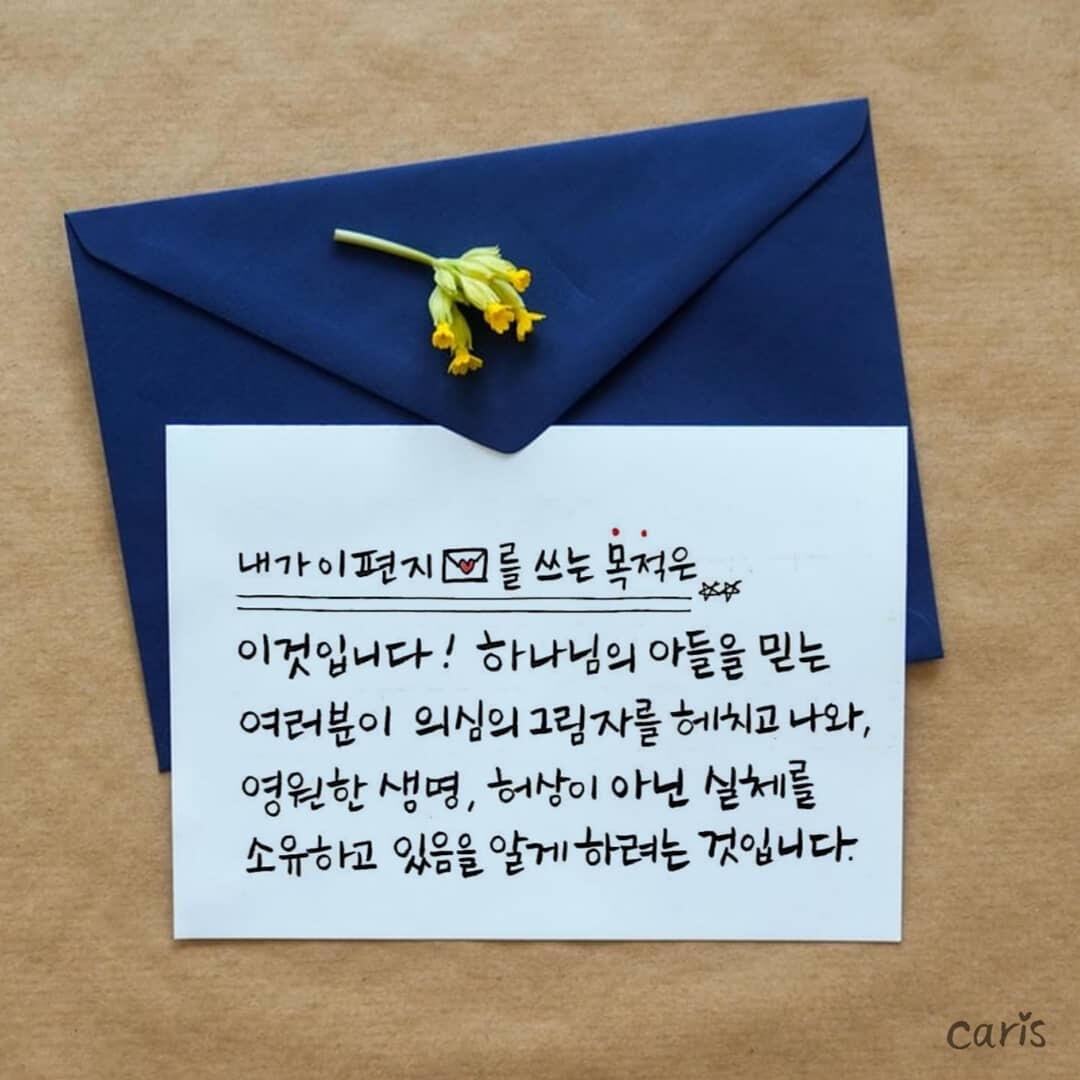 내가 이 편지를 쓰는 목적은
이것입니다! 하나님의 아들을 믿는
여러분이 의심의 그림자를 헤치고 나와,
영원한 생명, 허상이 아닌 실체를
소유하고 있음을 알게 하려는 것입니다.
caris